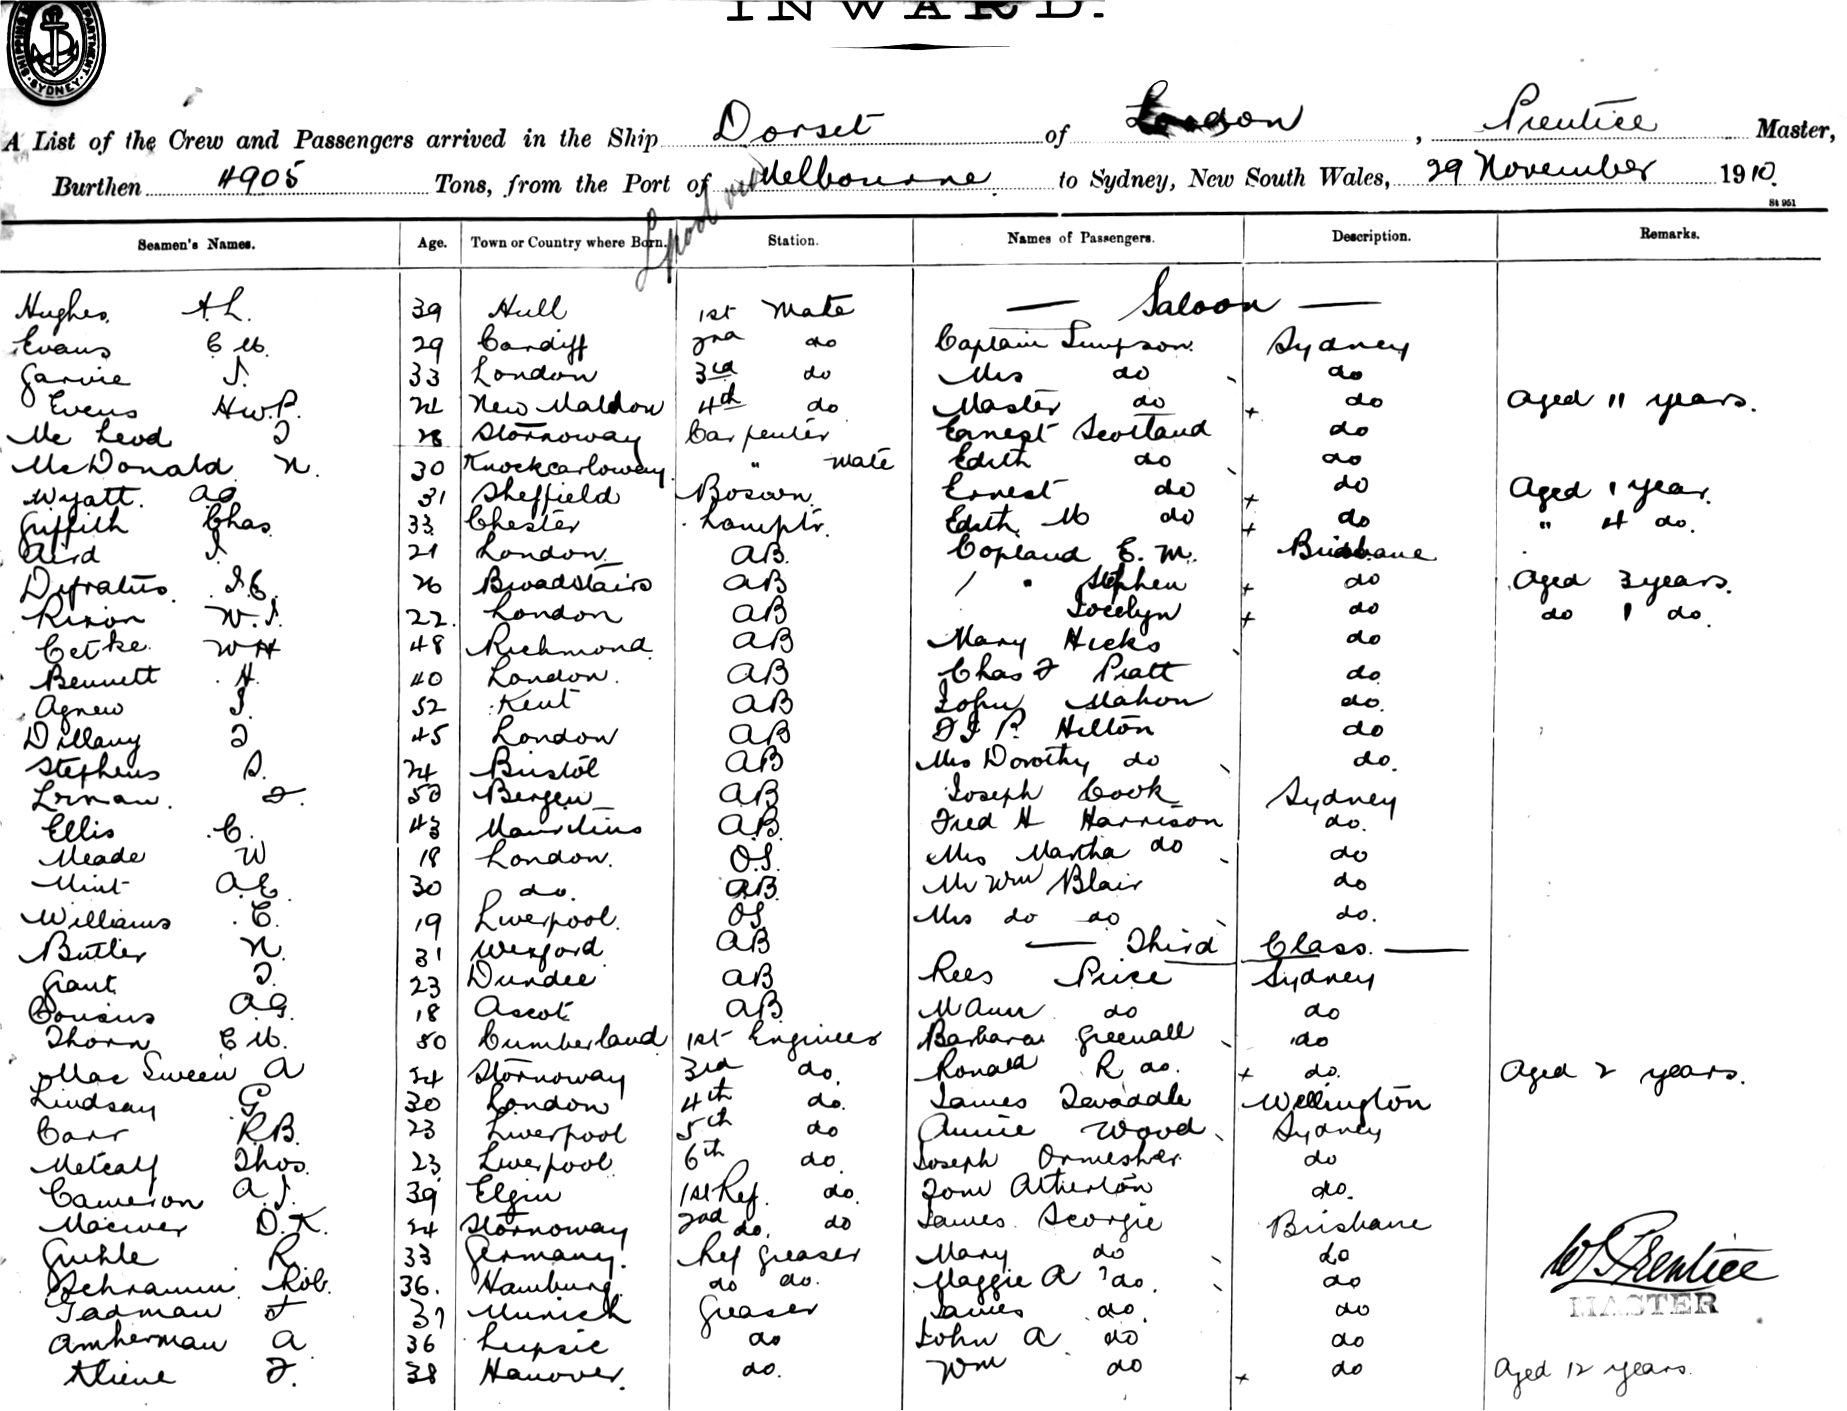 INWARD.
SHIPPING DEPARTMENT. SYDNEY.
A List of the Crew and Passengers arrived in the Ship Dorset of London, Prentice Master,
Burthen 4905 Tons, from the Port of L'pool via Melbourne to Sydney, New South Wales, 29 November 1910.
St 951
Seamen's Names. Age. Town or Country where Born. Station. Names of Passengers. Description. Remarks.
Hughes A L. 39 Hull 1st Mate — Saloon —
Evans C M. 29 Cardiff 2nd do Captain Simpson. Sydney
Garvie J. 33 London 3rd do Mrs do do
Evens H.W.P. 24 New Maldon 4th do Master do + do Aged 11 years.
Mc Leod 28 Stornoway Carpenter Ernest Scotland do
McDonald N. 30 Knockcarloway " Mate Edith do do
Wyatt. A 31 Sheffield Bosown. Ernest do + do Aged 1 year.
Griffith Chas 33 Chester Lamptr. Edith M do + do " 4 do.
Aird 21 London AB. Copland E. M. Brisbane
J.C. 26 Broadstairs AB / " Stephen + do Aged 3 years.
Rixon W.J. 22. London AB Jocelyn + do do 1 do.
W H 48 Richmond AB Mary Hicks do
Bennett H. 40 London. AB Chas F Pratt do
Agnew J. 52 Kent AB John Mahon do.
Dillany J 45 London AB P. Hilton do
Stephens S. 24 Bristol AB Mrs Dorothy do do.
J. 50 Bergen AB Joseph Cook Sydney
Ellis C. 43 Mauritius A.B. Fred H Harrison do.
Meade W 18 London. O.S. Mrs Martha do do
Mint A.E. 30 do. AB. Mr Wm Blair do
Williams C. 19 Liverpool. OS Mrs do do do.
Butler N. 31 Wexford AB — Third Class. —
Grant J. 23 Dundee AB Rees Price Sydney
Cousins A.G. 18 Ascot AB M Ann do do
Thorn C M. 50 Cumberland 1st Engineer Barbara Greenall do
Mac Sween A 24 Stornoway 3rd do. Ronald R do. + do. Aged 2 years.
Lindsay G 30 London 4th do. James Wellington
Carr R.B. 23 Liverpool 5th do Annie Wood Sydney
Metcalf Thos. 23 Liverpool 6th do. Joseph Ormesher do
Cameron A J. 39 Elgin 1st Ref. do. Tom Atherton do.
Maciver D.K. 24 Stornoway 2nd do. do James Scorgie Brisbane
Guhle R. 33 Germany. Ref Greaser Mary do do
Schramm Rob. 36. Hamburg. do do. Maggie A do. do
Tadman J 37 Munich Greaser James do. do
Amherman A 36 Leipsic do John A do do
Kliene F. 38 Hanover. do. Wm do + do Aged 12 years.
W S Prentice
MASTER